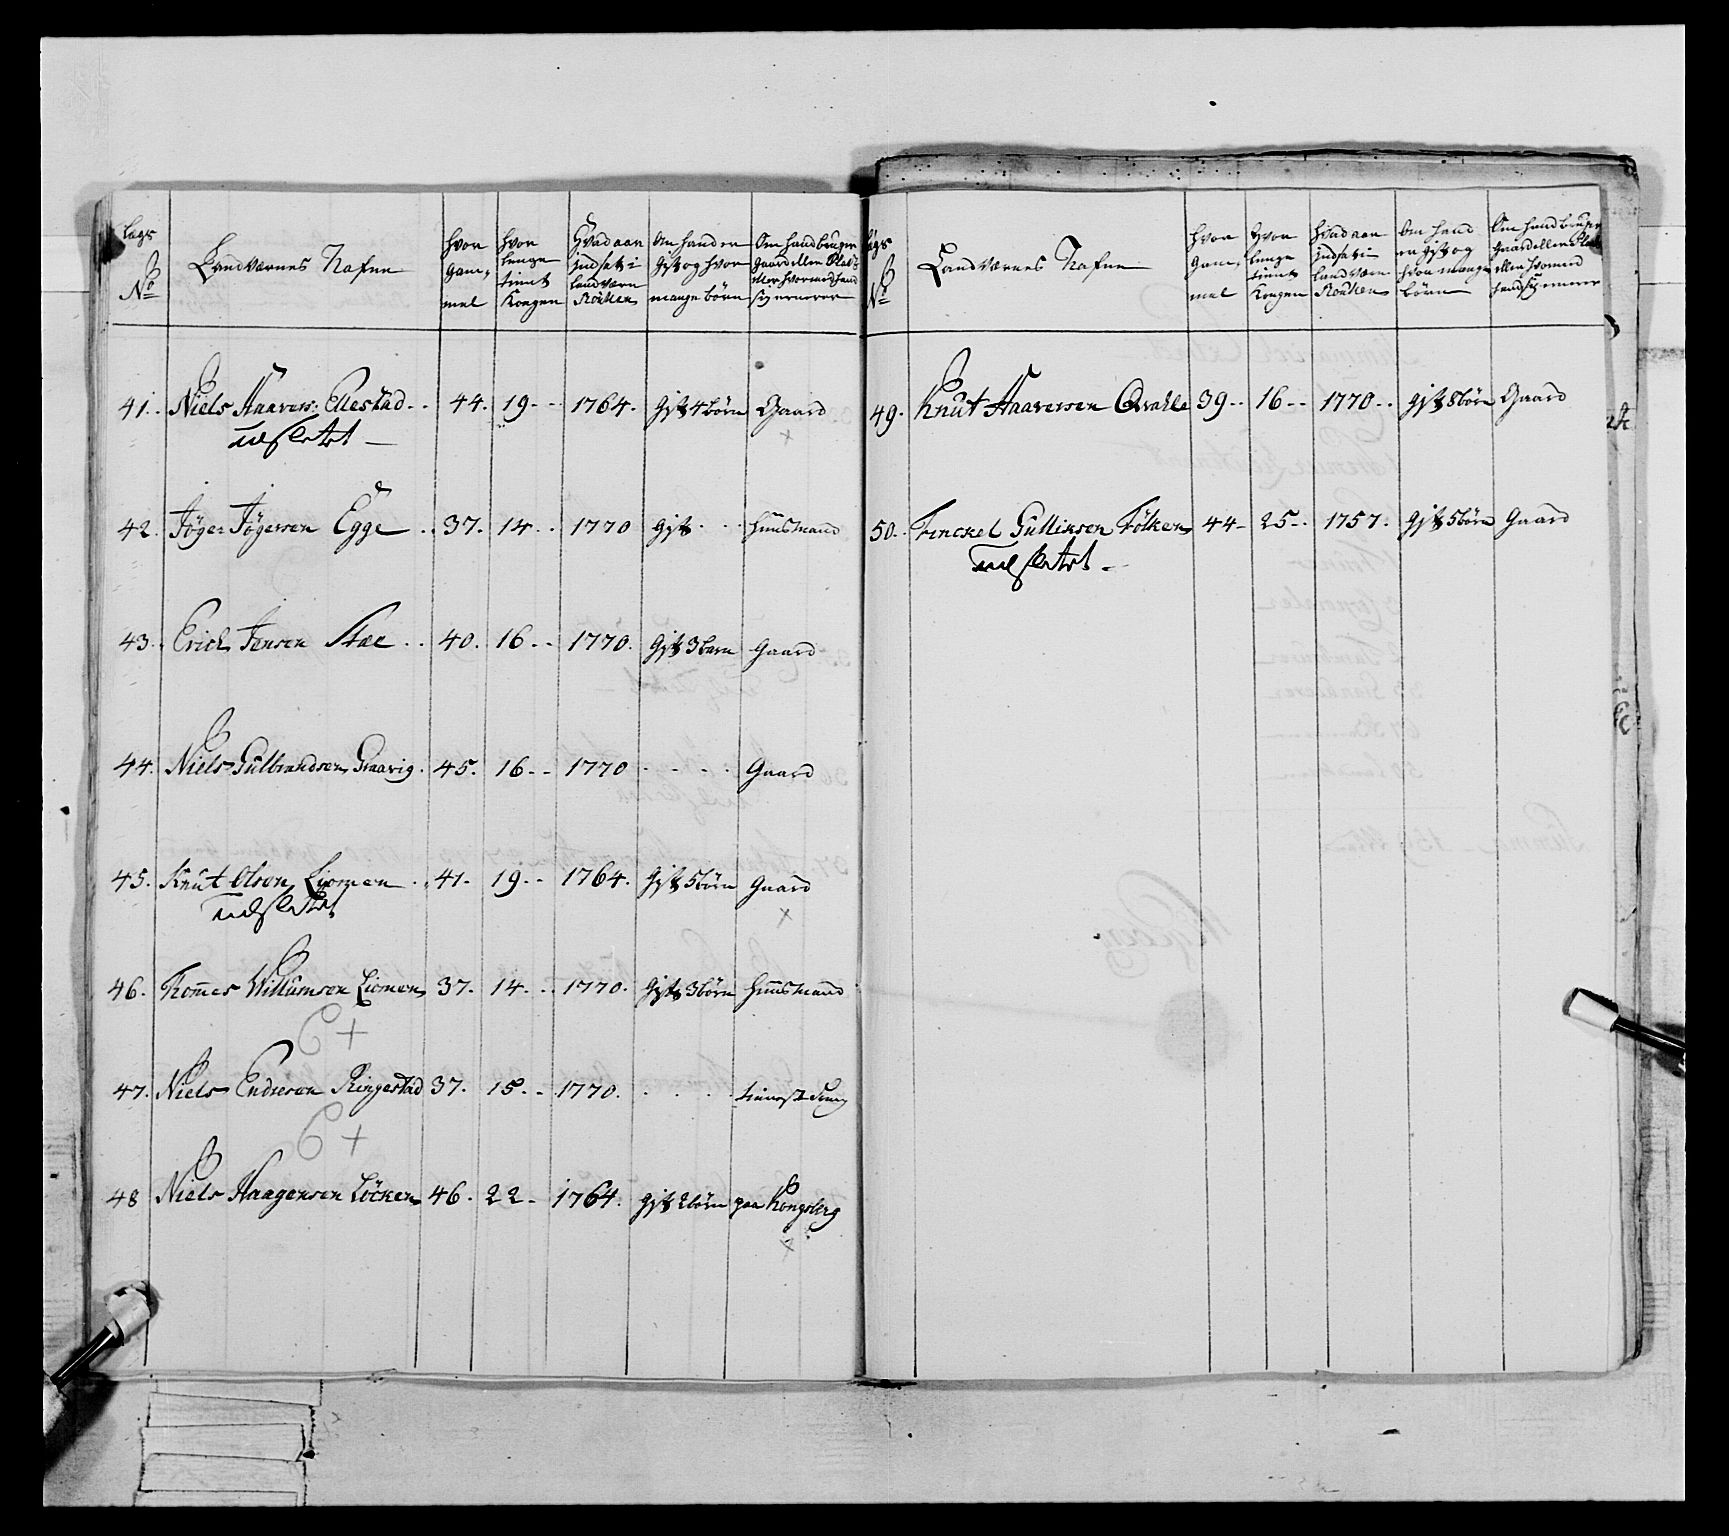 Lags No Landværnes Nafne hvor gammel hvor lenge tient Kongen Hvad aar indsat i landværn Roullen Om hand er gift og hvor mange börn Om hand bruger gaard eller Plads eller hvormed hand sig ernærer
41. Niels Haavers: Ellestad 44. 19 1764. gift 4 börn Gaard
udsletet
42. Jöger Jögersen Egge 37. 14 1770 gift huusmand
43. Erich Jensen Stae 40. 16 1770. gift 3 barn gaard
44. Niels Gulbrandsen Graavig 45. 16 1770 Gaard
45. Knut Olsen Liomen 41. 19 1764. gift 5 börn gaard
udsletet
46. Tomes Willumsen Liomen 37. 14 1770. gift 3 börn huusmand
47. Niels Endresen Ringestad 37. 15 1770.
48 Niels Haagensen Löcken 46. 22 1764. gift 2 börn paa Kongsberg
Lags No Landværnes Nafne hvor gammel hvor lenge tient Kongen hvad aar indsat i landværn Roullen Om hand er gift og hvor mange börn Om hand bruger gaard eller Plads eller hvormed hand sig ernærer
49. Knut Haaversen Qvahle 39 16 1770 gift 8 börn Gaard
50. Tinckel Gulliksen Fölken 44 25 1757. gift 5 börn gaard
udsletet